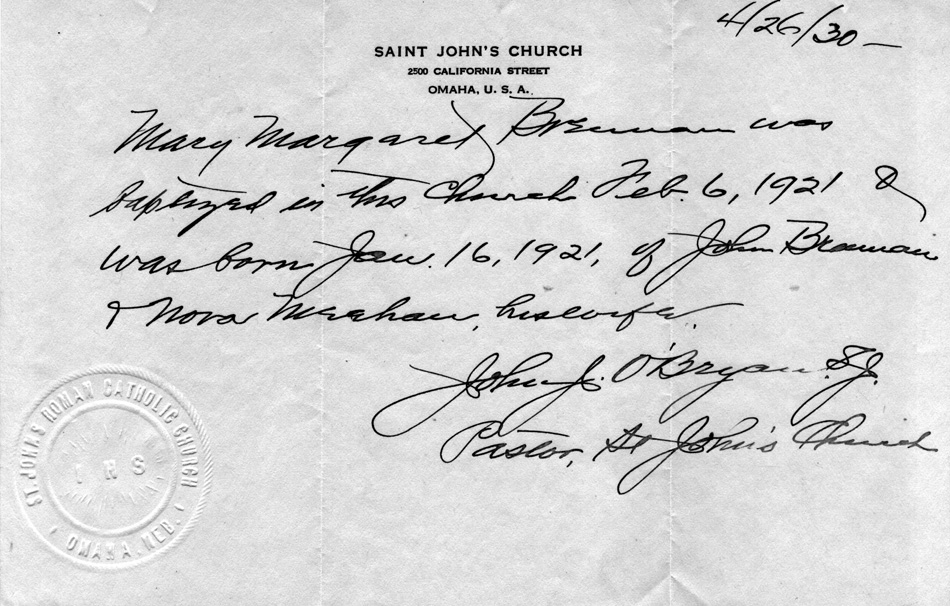 4/26/30 –
SAINT JOHN'S CHURCH
2500 CALIFORNIA STREET
OMAHA, U. S. A.
Mary Margaret Brennan was
baptized in this Church Feb. 6, 1921 &
was born Jan. 16, 1921, of John Brennan
& Nora Meehan, his wife.
John J. O'Bryan. S.J.
Pastor, St John's Church
ST. JOHN'S ROMAN CATHOLIC CHURCH
I H S
OMAHA, NEB.